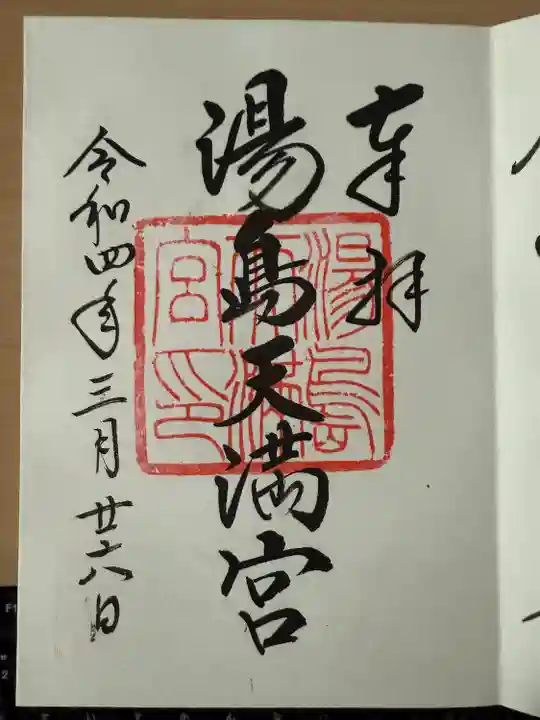 奉拝
湯島天満宮
湯島天満宮印
令和四年三月廿六日